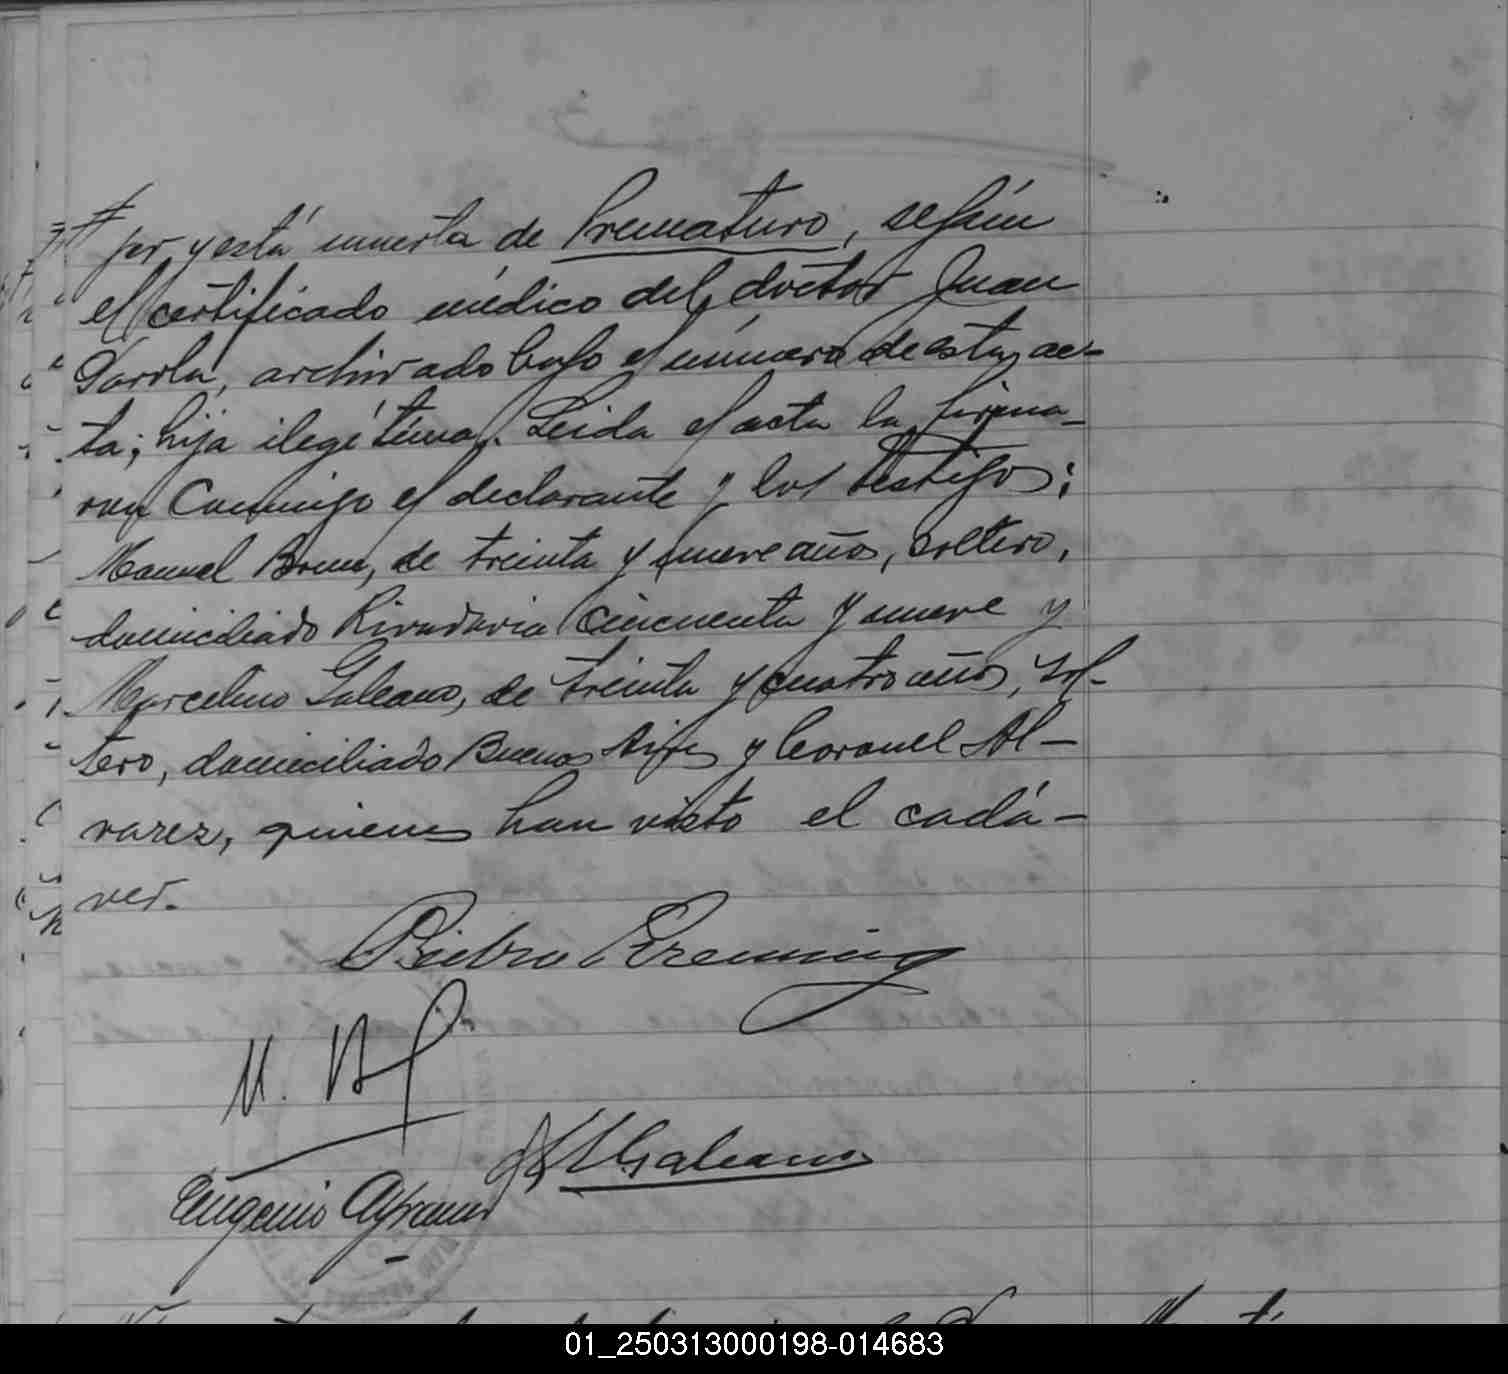 jer y está muerta de Prematuro, según
el certificado médico del doctor Juan
archivado bajo el número de esta, ac-
ta; hija ilegítima. Leida el acta la firma-
ron Conmigo el declarante y los testigos;
Manuel de treinta y nueve años, soltero,
domiciliado Rivadavia cincuenta y nueve y
Marcelino Galeano, de treinta y cuatro años, sol-
tero, domiciliado Buenos Aires y Coronel Al-
varez, quienes han visto el cadá-
ver.
Pietro
M.
Galeano
Eugenio
01_250313000198-014683